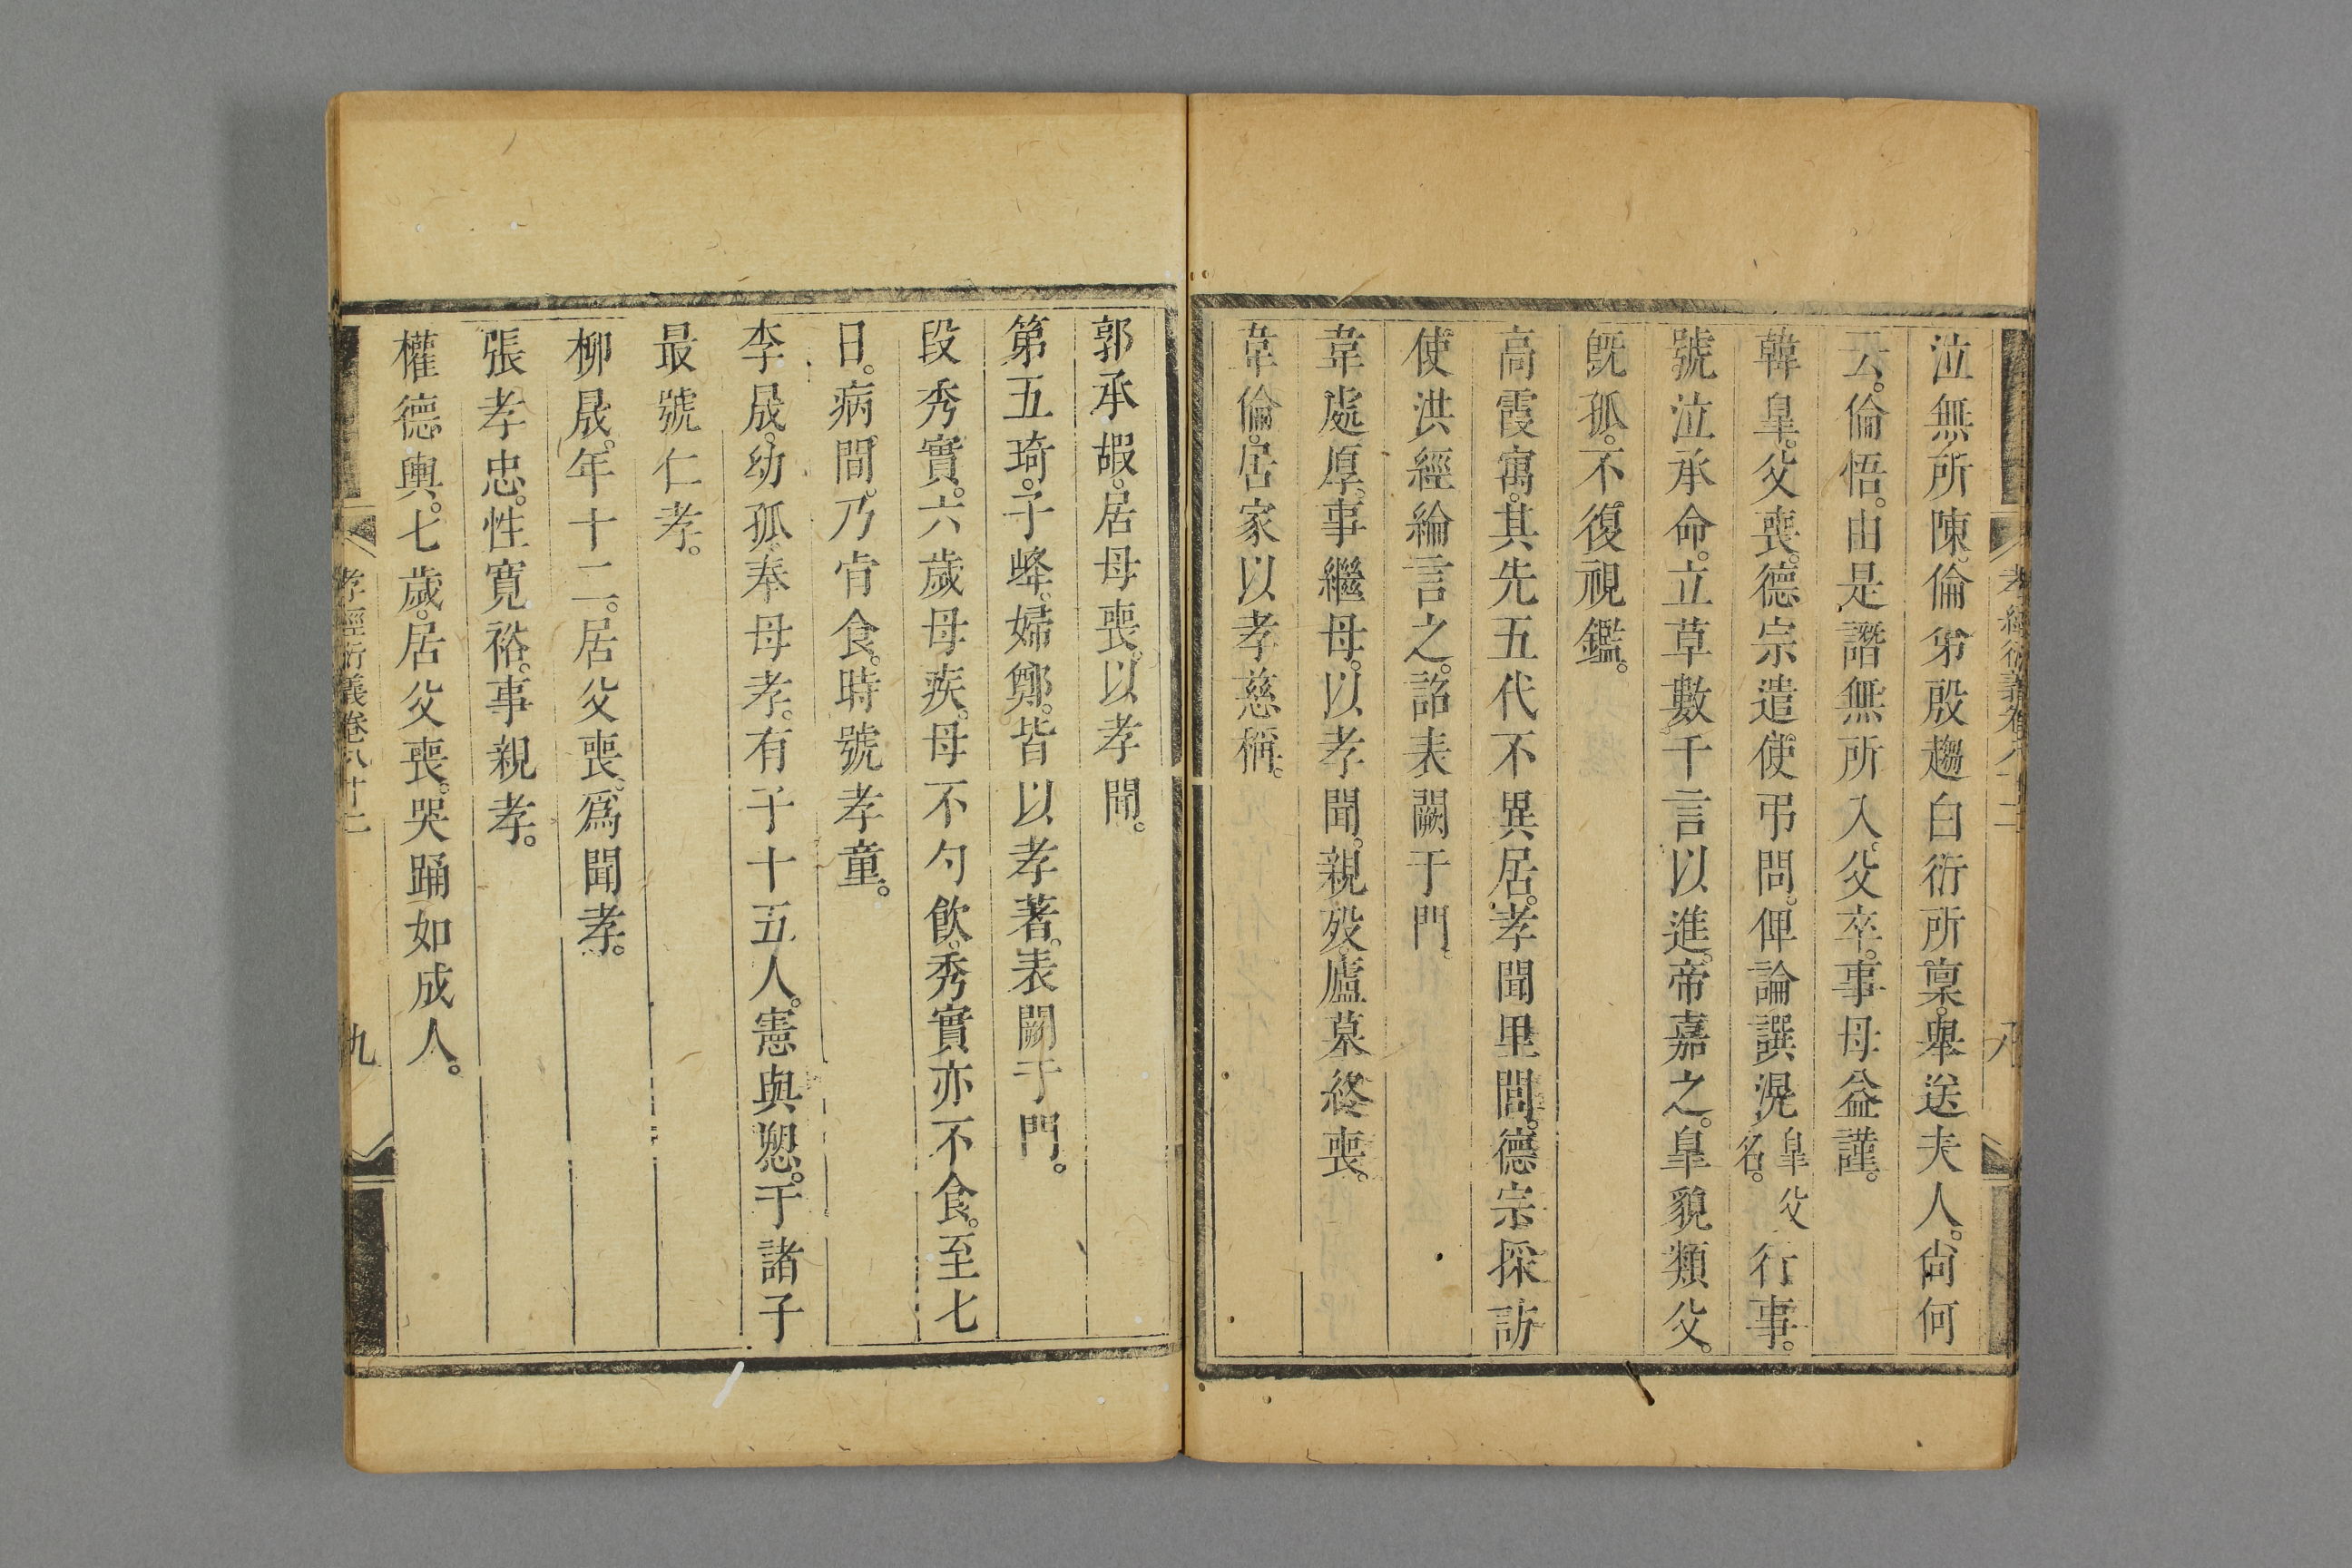 泣無所陳。倫弟殷趨白衍所稟。舉送夫人。尚何
云。倫悟。由是譖無所入。父卒。事母益謹。
韓臯。父喪。德宗遣使弔問。俾論譔滉臯父行事。
名。
號泣承命。立草數千言以進。帝嘉之。臯貌類父。
既孤。不復視鑑。
高霞寓。其先五代不異居。孝聞里閭。德宗採訪
使洪經綸言之。詔表闕于門。
韋處厚。事繼母。以孝聞。親歿。廬墓終喪。
韋倫。居家以孝慈稱。
孝經衍義卷八十二
八
郭承嘏。居母喪。以孝聞。
第五琦。子峰。婦鄭。皆以孝著。表闕于門。
段秀實。六歲母疾。母不勺飲。秀實亦不食。至七
日。病間。乃肯食。時號孝童。
李晟。幼孤奉母孝。有子十五人。憲與愬。于諸子
最號仁孝。
柳晟。年十二。居父喪。爲聞孝。
張孝忠。性寬裕。事親孝。
權德輿。七歲。居父喪。哭踊如成人。
孝經衍義卷八十二
九